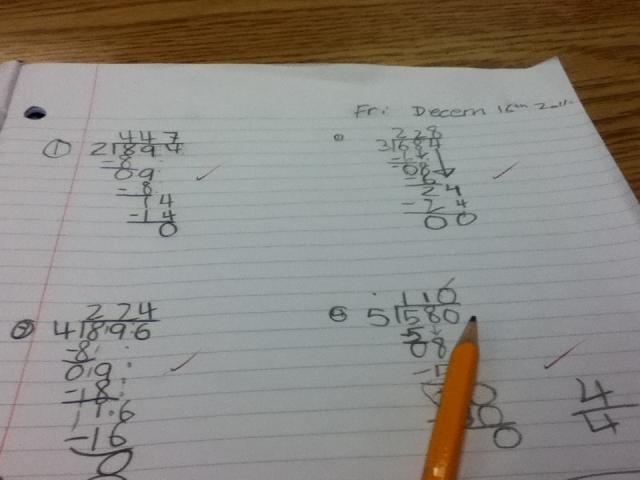 Fri: Decem 16th
1
447
2)894
-8
09
-8
14
-14
0
228
3)684
-6
08
-6
24
-24
00
2
224
4)896
-8
09
-8
16
-16
0
116
5)580
-5
08
0
4
4